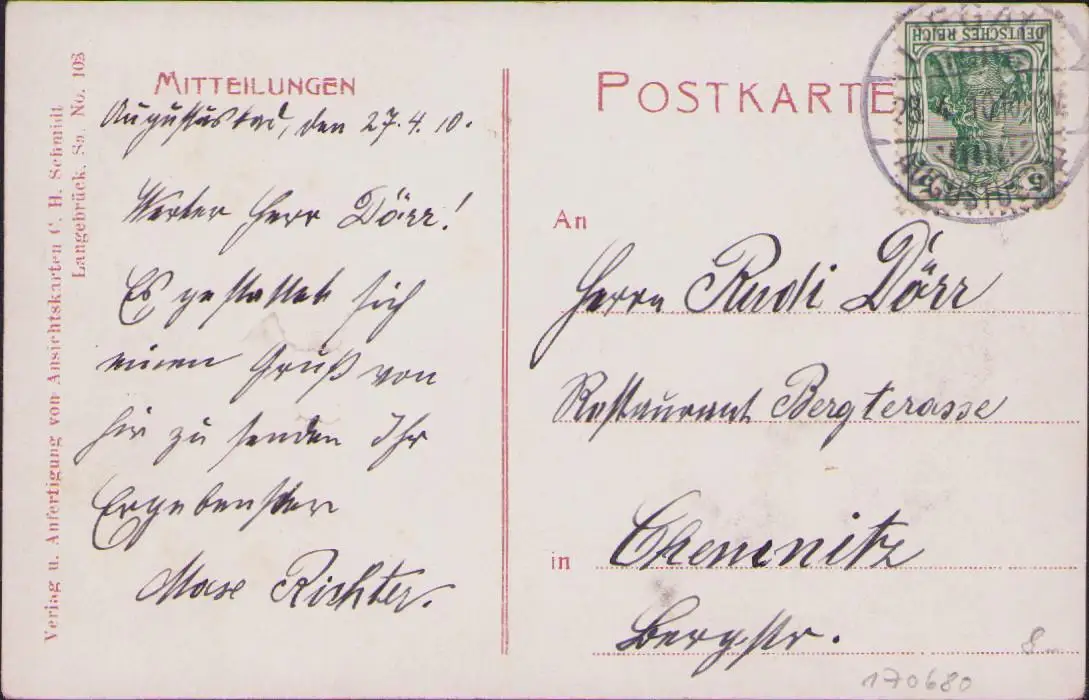 MITTEILUNGEN
Augustusbad, den 27.4.10.
Werter Herr Dörr!
Es gestattet sich
einen Gruß von
hir zu senden Ihr
Ergebenster
Max Richter.
Verlag u. Anfertigung von Ansichtskarten C. H. Schmidt
Langebrück, Sa. No. 103
POSTKARTE
DEUTSCHES REICH
5
AUGUSTUSBAD
An
Herrn Rudi Dörr
Restaurant Bergterasse
in Chemnitz
Bergstr.
8
170680